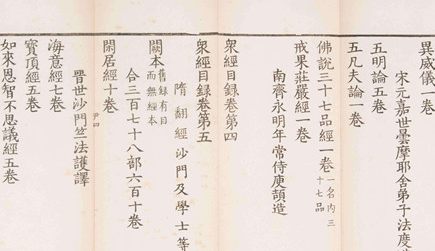 異威儀一卷
宋元嘉世曇摩耶舍弟子法度
五明論五卷
五凡夫論一卷
佛說三十七品經一卷一名內三十七品
戒果莊嚴經一卷
南齊永明年常侍庾頡造
衆經目録卷第四
衆經目録卷第五
隋翻經沙門及學士等
闕本舊録有目而無經本
合三百七十八部六百十卷
閑居經十卷
尹四
晋世沙門竺法護譯
海意經七卷
寳頂經五卷
如來恩智不思議經五卷